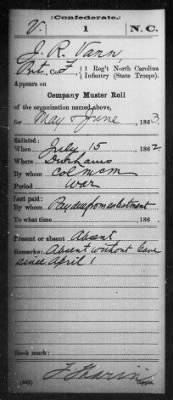 (Confederate.)
V. 1 N.C.
J. R. Vann
Pvt, Co. F, 1 Reg't North Carolina
Infantry (State Troops).
Appears on
Company Muster Roll
of the organization named above,
for May & June, 1863
Enlisted:
When July 15 1862
Where Durhams
By whom Col McM
Period War
Last paid:
By whom Pay due from enlistment
To what time 186
Present or absent Absent
Remarks: Absent without leave
since April 1
Book mark:
(642) Copyist.